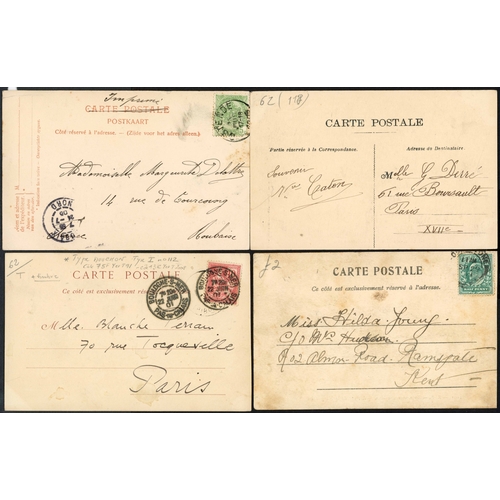 Imprimé
CARTE POSTALE
POSTKAART
Côté réservé à l'adresse. — (Zijde voor het adres alleen.)
Mademoiselle Marguerite Delattre
14 rue de Tourcoing
Roubaix
NORD
62 (178)
CARTE POSTALE
Partie réservée à la Correspondance.
Adresse du Destinataire.
Souvenir
Caton
Melle G. Derré
61 rue Boursault
Paris
XVIIe
62
T
CARTE POSTALE
Ce côté est exclusivement réservé à l'adresse.
BOULOGNE-S-MER
Mlle Blanche Terran
70 rue Tocqueville
Paris
£2
CARTE POSTALE
Ce côté est exclusivement réservé à l'adresse.
Miss Hilda Young
C/o Mrs Hudson
Road, Ramsgate
Kent